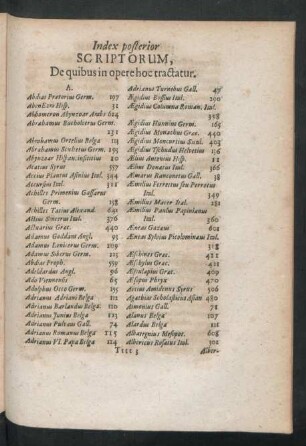 Index posterior
SCRIPTORUM,
De quibus in opere hoc tractatur.
A.
Abdias Pratorius Germ. 197
Aben Ezra Hisp. 31
Abhomeron Abynzoar Arabs 624
Abrahamus Bucholcerus Germ.
231
Abrahamus Ortelius Belga 114
Abrahamus Scultetus Germ. 195
Abynzoar Hispan.
Acacius Syrus 357
Accius Plautus Asinius Ital. 344
Accursius Ital. 321
Achilles Priminius Gassarus
Germ. 158
Achilles Tatius Alexand. 641
Actius Sincerus Ital. 376
Actuarius Grac. 440
Adamus Goddam Angl. 95
Adamus Lonicerus Germ. 209
Adamus Siberus Germ. 225
Abdias Proph. 559
Adelardus Angl. 96
Ado Viennensis 65
Adolphus Occo Germ. 195
Adrianus Adriani Belga 121
Adrianus Barlandus Belga 120
Adrianus Junius Belga 124
Adrianus Pulvaus Gall. 74
Adrianus Romanus Belga 115
Adrianus VI. Papa Belga 124
Adrianus Turnebus Gall. 47
Ægidius Bossius Ital. 290
Ægidius Columna Roman. Ital.
368
Ægidius Hunnius Germ. 165
Ægidius Monachus Grac. 440
Ægidius Mercurius Sicul. 405
Ægidius Tschudus Helvetius 126
Ælius Antonius Hisp. 12
Ælius Donatus Ital. 366
Æmarus Ranconetus Gall. 38
Æmilius Ferrettus seu Ferretus
Ital. 349
Æmilius Macer Ital. 231
Æmilius Paulus Papinianus
Ital. 360
Æneas Gazaus 601
Æneas Sylvius Picolominaus Ital.
318
Æschines Grac. 421
Æschylus Grac. 421
Æsculapius Grac. 419
Æsopus Phryx 470
Aetius Amidenus Syrus 502
Agathius Scholasticus Asian. 480
Aimonius Gall. 71
Alanus Belga 107
Alardus Belga 111
Albategnius Mesopot. 608
Albericus Rosatus Ital. 302
Tttt 3
Alber-